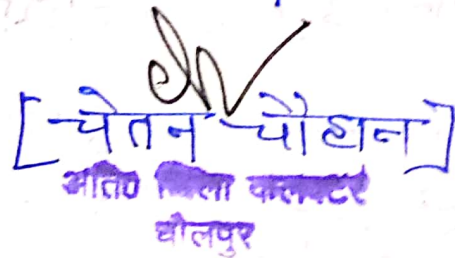 [चेतन चौहान]
अति० जिला कलक्टर
धौलपुर